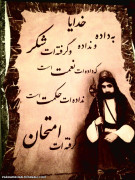 خدایا
به داده
و نداده
و گرفته ات شکر
که داده ات نعمت است
نداده ات حکمت است
و گرفته ات
امتحان